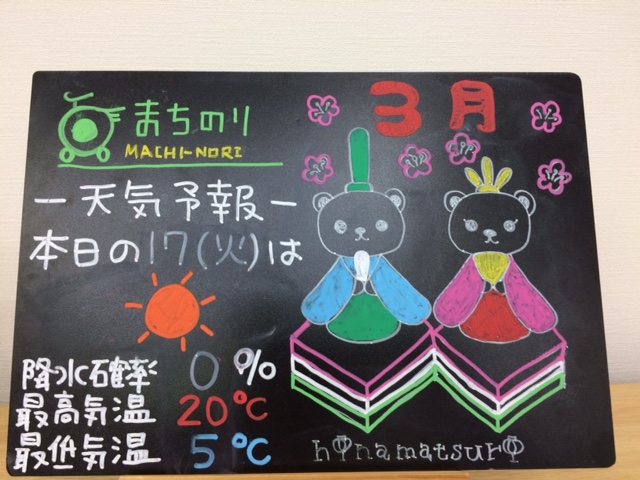 まちのり
MACHI-NORI
3月
－天気予報－
本日の17(火)は
降水確率 0%
最高気温 20℃
最低気温 5℃
hinamatsuri